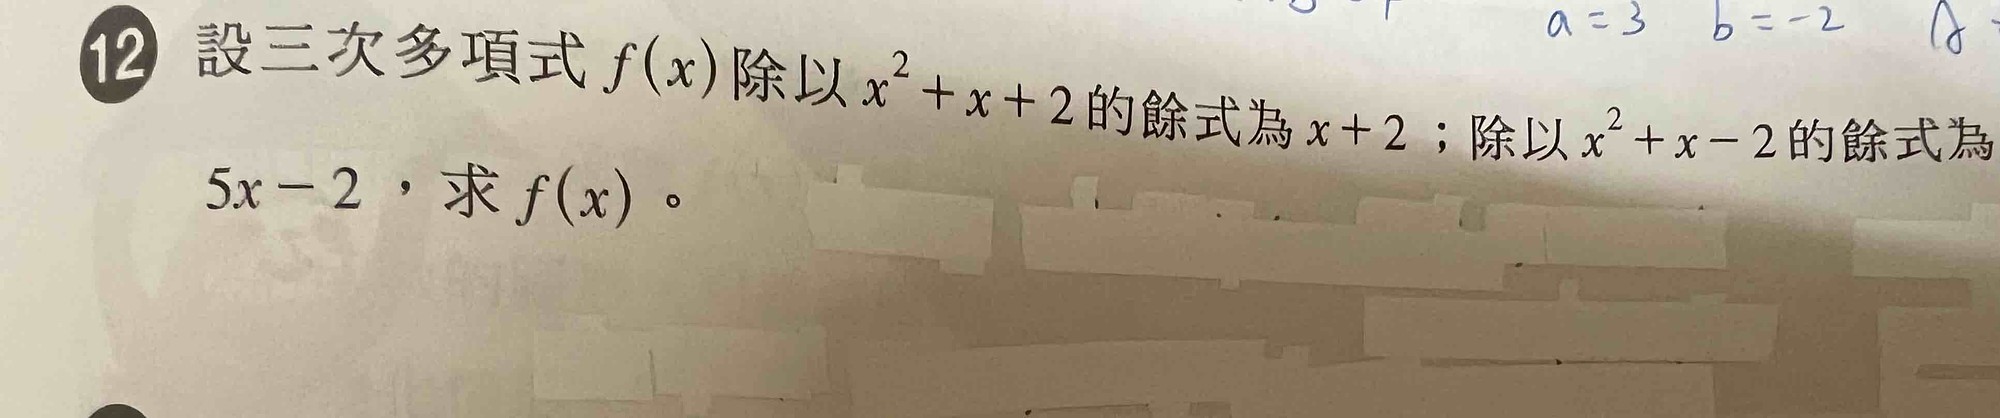 a = 3 b = -2
12 設三次多項式 f(x) 除以 x² + x + 2 的餘式為 x + 2；除以 x² + x - 2 的餘式為
5x - 2，求 f(x)。